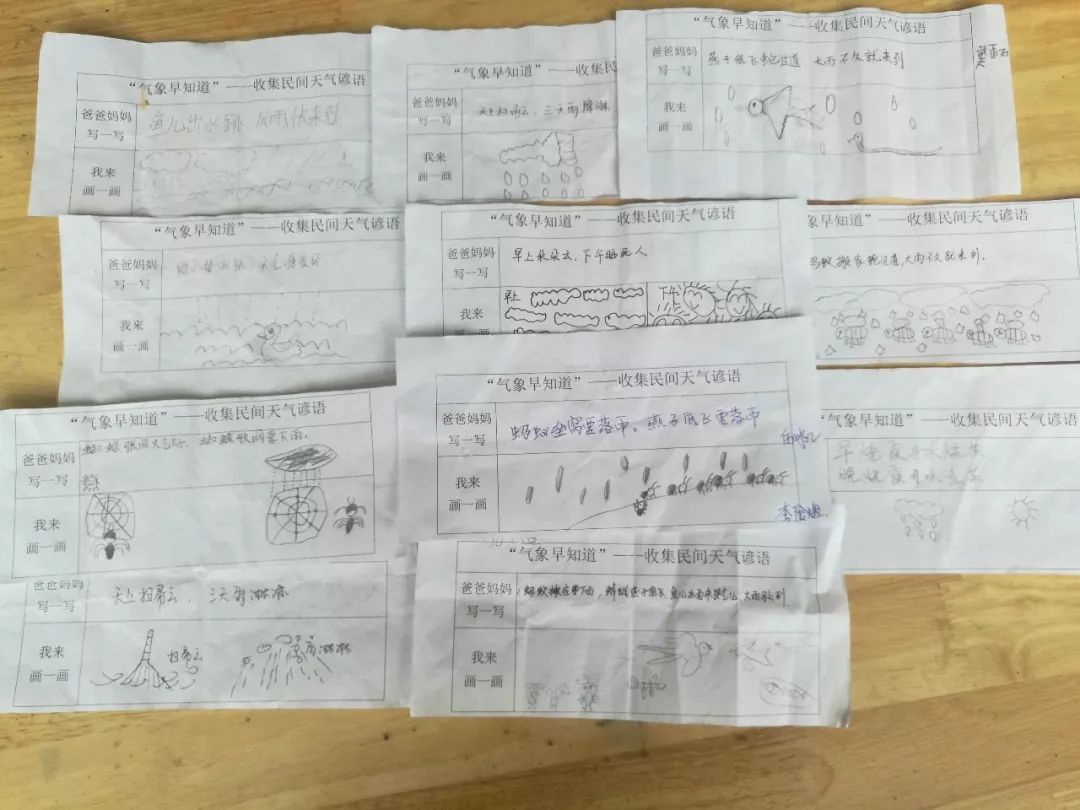 “气象早知道”——收集民间天气谚语
爸爸妈妈
写一写
鱼儿出水跳 风雨快来到
我来
画一画
“气象早知道”——收集民
爸爸妈妈
写一写
天上扫帚云，三天雨降淋
我来
画一画
“气象早知道”——收集民间天气谚语
爸爸妈妈
写一写
燕子低飞蛇过道 大雨不久就来到
我来
画一画
“气象早知道”——收集民间天气谚语
爸爸妈妈
写一写
我来
画一画
“气象早知道”——收集民间天气谚语
爸爸妈妈
写一写
早上朵朵云，下午晒死人
我来
画一画
早上
下午
气象早知道”——收集民间天气谚语
蚂蚁搬家蛇过道，大雨不久就来到．
“气象早知道”——收集民间天气谚语
爸爸妈妈
写一写
张网天气好
张网要下雨．
我来
画一画
“气象早知道”——收集民间天气谚语
爸爸妈妈
写一写
蚂蚁垒窝要落雨。燕子低飞要落雨
我来
画一画
“气象早知道”——收集民间天气谚语
早烧夜开水烧茶
晚烧夜开
爸爸妈妈
写一写
天上扫帚云，三天雨淋淋
我来
画一画
扫帚云
雨淋淋
“气象早知道”——收集民间天气谚语
爸爸妈妈
写一写
大雨就到．
我来
画一画